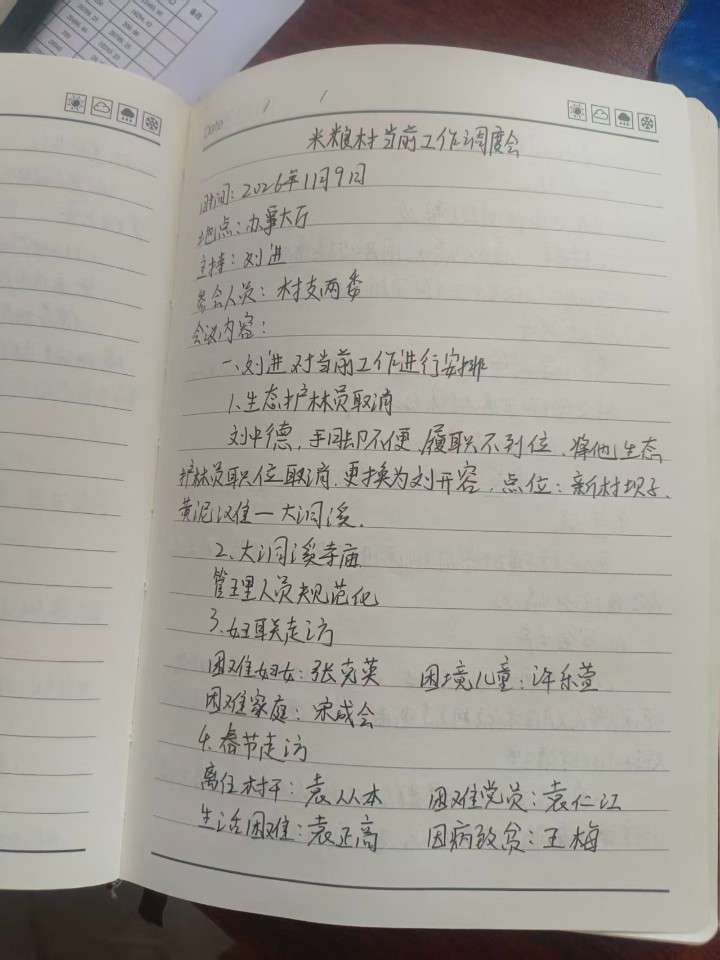 Date
米粮村当前工作调度会
时间：2026年11月9日
地点：办事大厅
主持：刘进
参会人员：村支两委
会议内容：
一、刘进对当前工作进行安排
1、生态护林员取消
刘中德，手脚不便，履职不到位，将他生态
护林员职位取消，更换为刘开容，点位：新村坝子、
黄泥汉佳一大洞溪，
2、大洞溪寺庙
管理人员规范化
3、妇联走访
困难妇女：张克英 困境儿童：许乐萱
困难家庭：宋成会
4、春节走访
离任村干：袁从本 困难党员：袁仁江
生活困难：袁正高 因病致贫：王梅